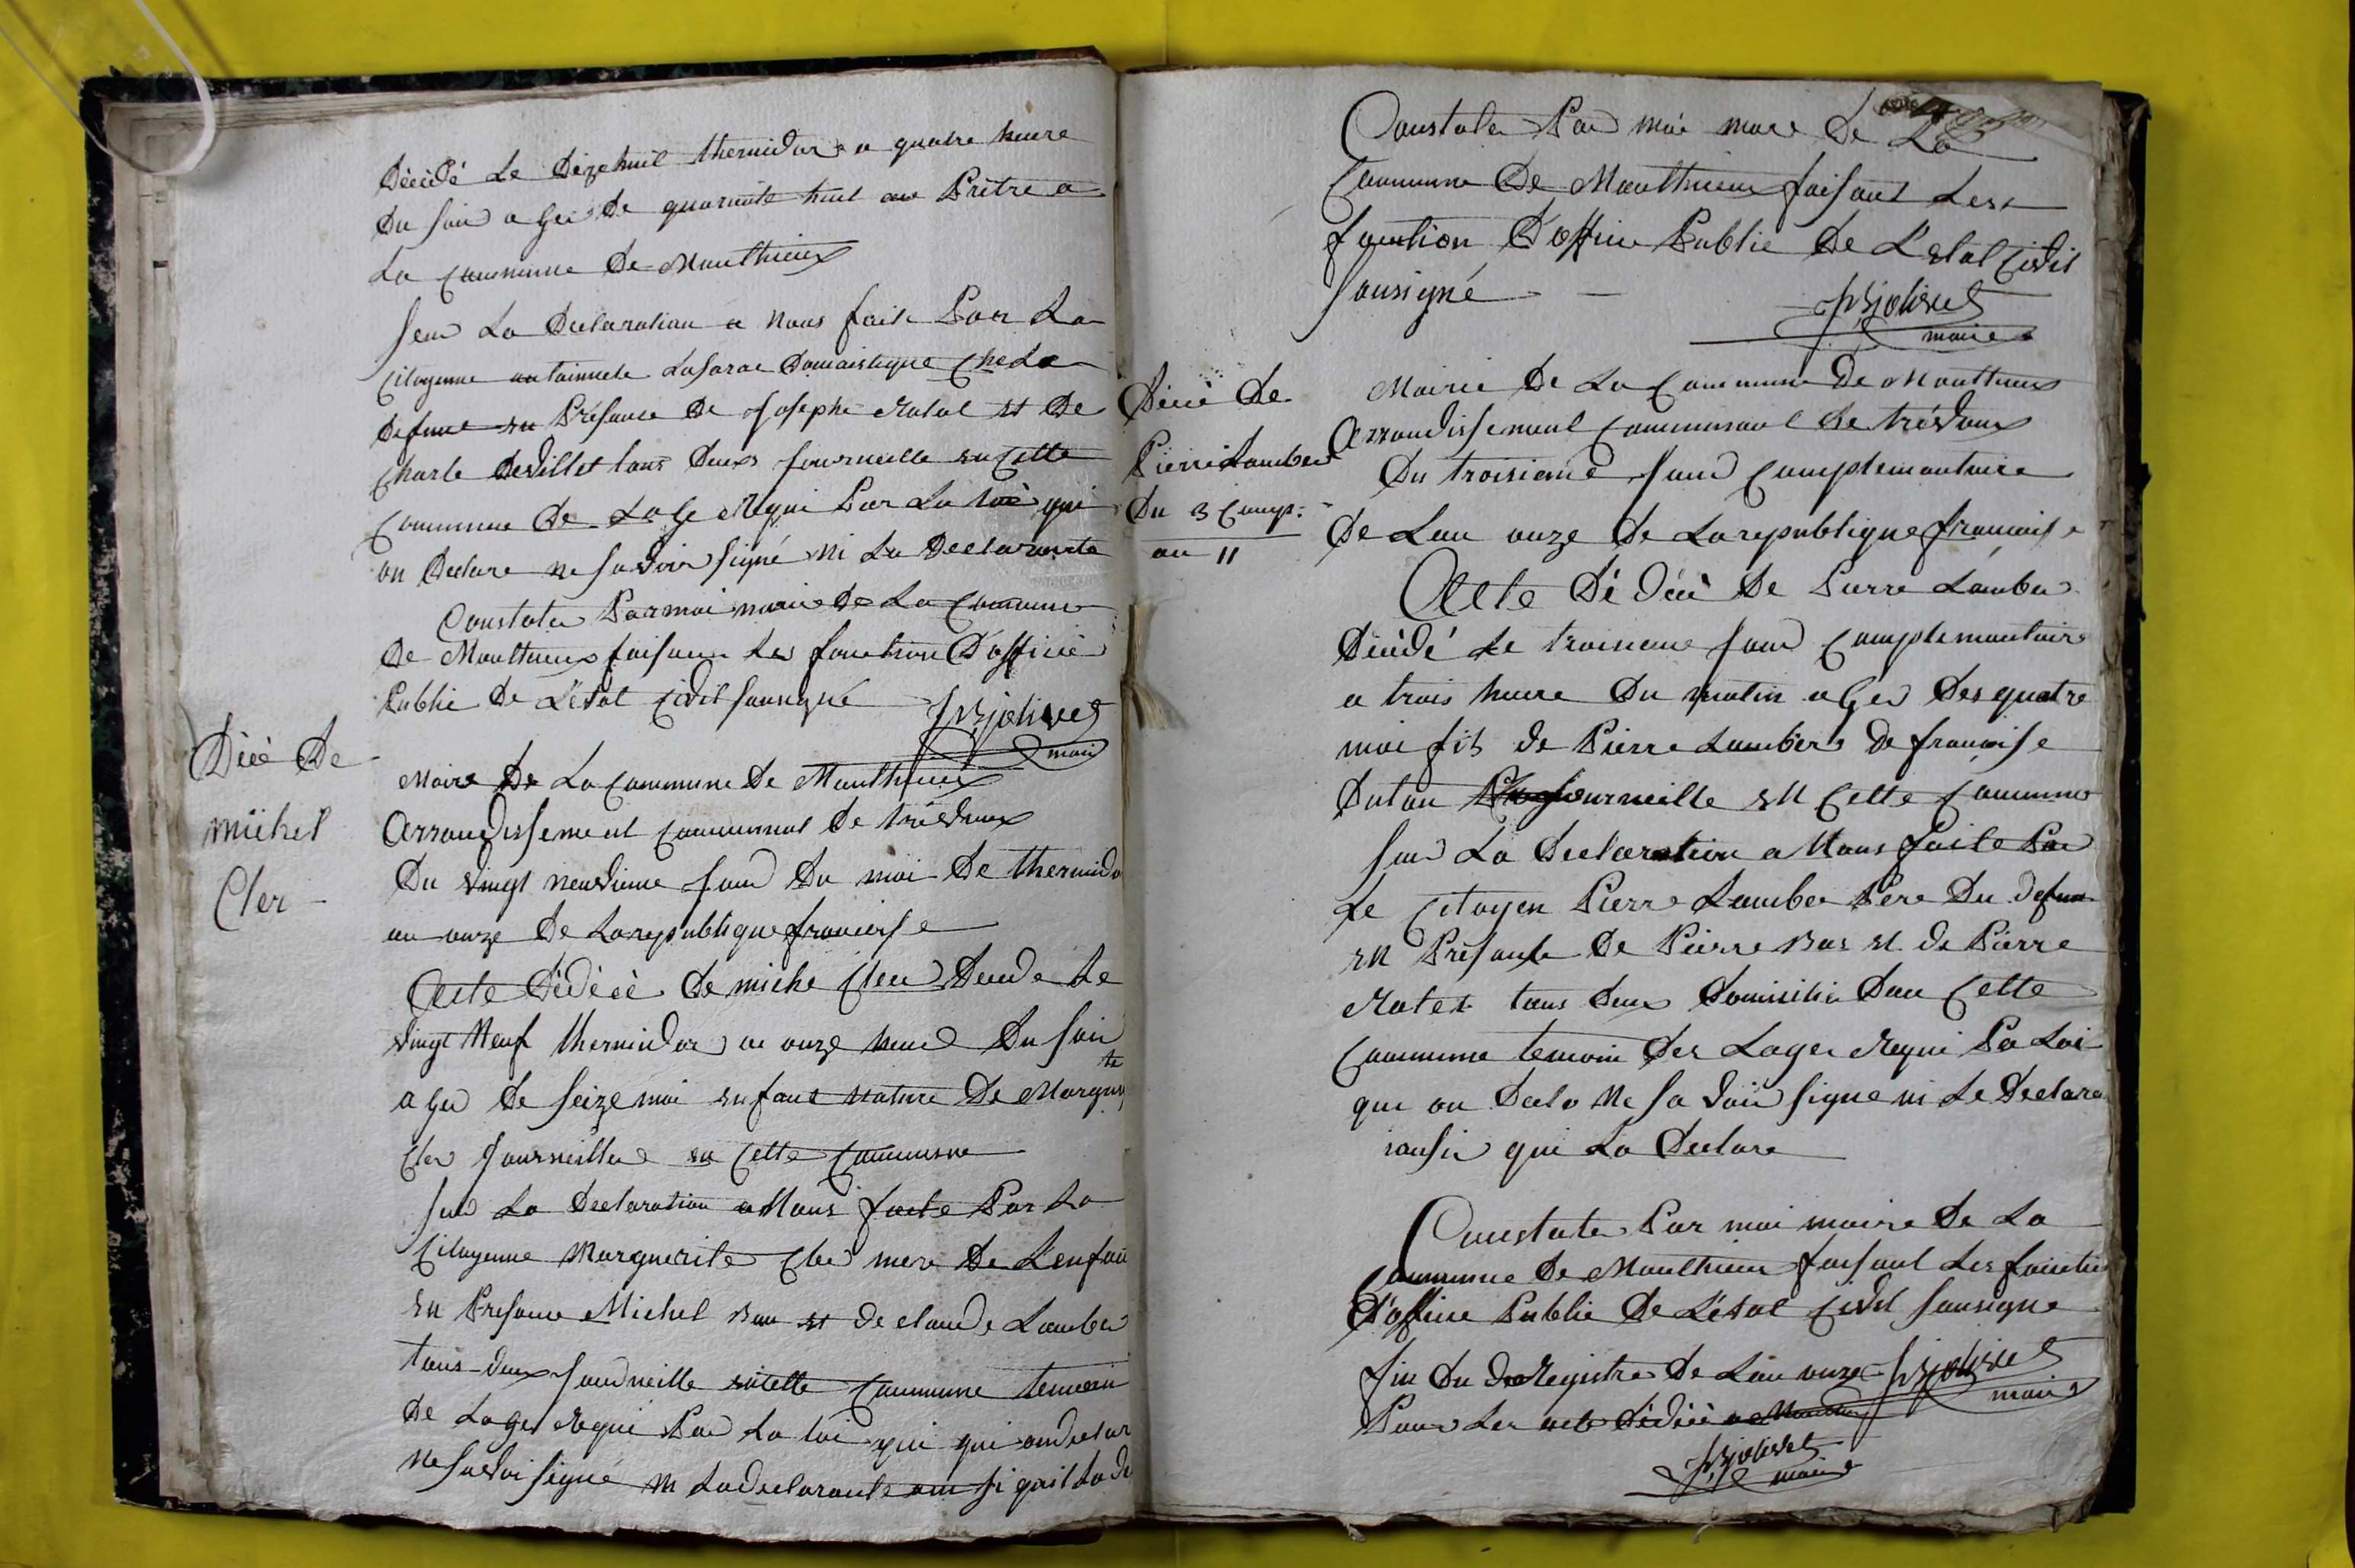 Décédé Le Dizehuit thermidor a quatre heure
Du soir a Gé de quarante huit an Prêtre a
La Commune De Monthieux
seur La Declaration a nous faite Par La
Citoyenne antoinnete Lasarae Domaistique Che La
Defunt en Présance De Joseph Ratat et De
Charle Devillet tous Deux journeille en Cette
Commune De Lage Requi Par La loi qui
on Declare ne savoir signé ni La Declarante
Constater Par moi maire De La Commune
De Montheux faisan Les fonction D'officie
Public De L'état Civil sousigné
JBjolivet
maire
Décè De
michel
Cler
Maire De La Commune De Monthieux
Arrondissement Communal De trévoux
Du vingt neuvieme jour Du moi De thermido
an onze De La republique francaise
Acte Dédécè De miche Cler Decede Le
vingt Neuf thermidor a onze heure Du soir
a Ger De seize moi enfant nature De Margueri te
Cler journeillere en Cette Commune
sur La Declaration a Nous faite Par La
Citoyenne Marguerite Cler mere De L'enfan
en Presance Michel Bau et De claude Lamber
tous deux journeille en cette Commune temoin
De Lager Requi Par La loi qui qui on declar
Ne savoir signé ni La declarante ausi quil La de
Constater Par moi maire De La
Commune De Monthieux faisant Les
fonction D'officie Public De L'etat Civil
sousigné
JBjolivet
maire
Décè De
Pierre Lamber
Du 3 Comp:
an 11
Mairie De La Commune De Montheux
Arrondissement Communal De trévoux
Du troisieme jour Complemantaire
De Lan onze De La republique francaise
Acte Dé Décè De Pierre Lamber
Décédé Le troisieme jour Complemantaire
a trois heure Du matin a Ger Des quatre
moi fis de Pierre Lamber De francoise
Dutan journeille en Cette Commune
sur La Declaration a Nous faite Par
Le Citoyen Pierre Lamber Pere Du defun
en Présante De Pierre Bas et de Pierre
Ratet tous Deux Domicilié Dan Cette
Commune temoin Der Lager Requi Pa Loi
qui on Decla Ne savoir signe ni Le Declara
iansi que La Declare
Constater Par moi maire De La
Commune De Monthieux faisant Les fonctio
D'officie Public De L'état Civil sousigne
fin Du De Registre De Lan onze JBjolivet
Pour Les acte Dédécè a Month maire
JBjolivet
maire